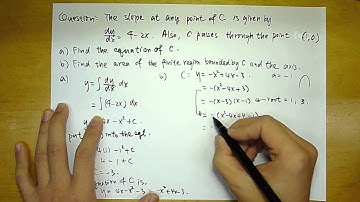 Question: The slope at any point of C is given by
dy/dx = 4-2x. Also, C passes through the point (1,0)
a) Find the equation of C.
b) Find the area of the finite region bounded by C and the axis.
a)
y = ∫ dy/dx dx
= ∫ (4-2x) dx
4x - x² + C
into the eqt.
4(1) - 1² + C
4 - 1 + C
of C is,
y = 4x - x² - 3 = -x² + 4x - 3.
b) C: y = -x² + 4x - 3 a = -1
= -(x² - 4x + 3)
= -(x-3)(x-1) root = 1, 3
= -(x² - 4x + 4 - 1)